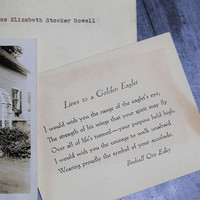 es Elizabeth Stocker Rowell
Lines to a Golden Eaglet
I would wish you the range of the eagle's eye,
The strength of his wings that your spirit may fly
Over all of life's turmoil—your purpose held high.
I would wish you the courage to walk unafraid
Wearing proudly the symbol of your accolade.
Birdsall Otis Edey